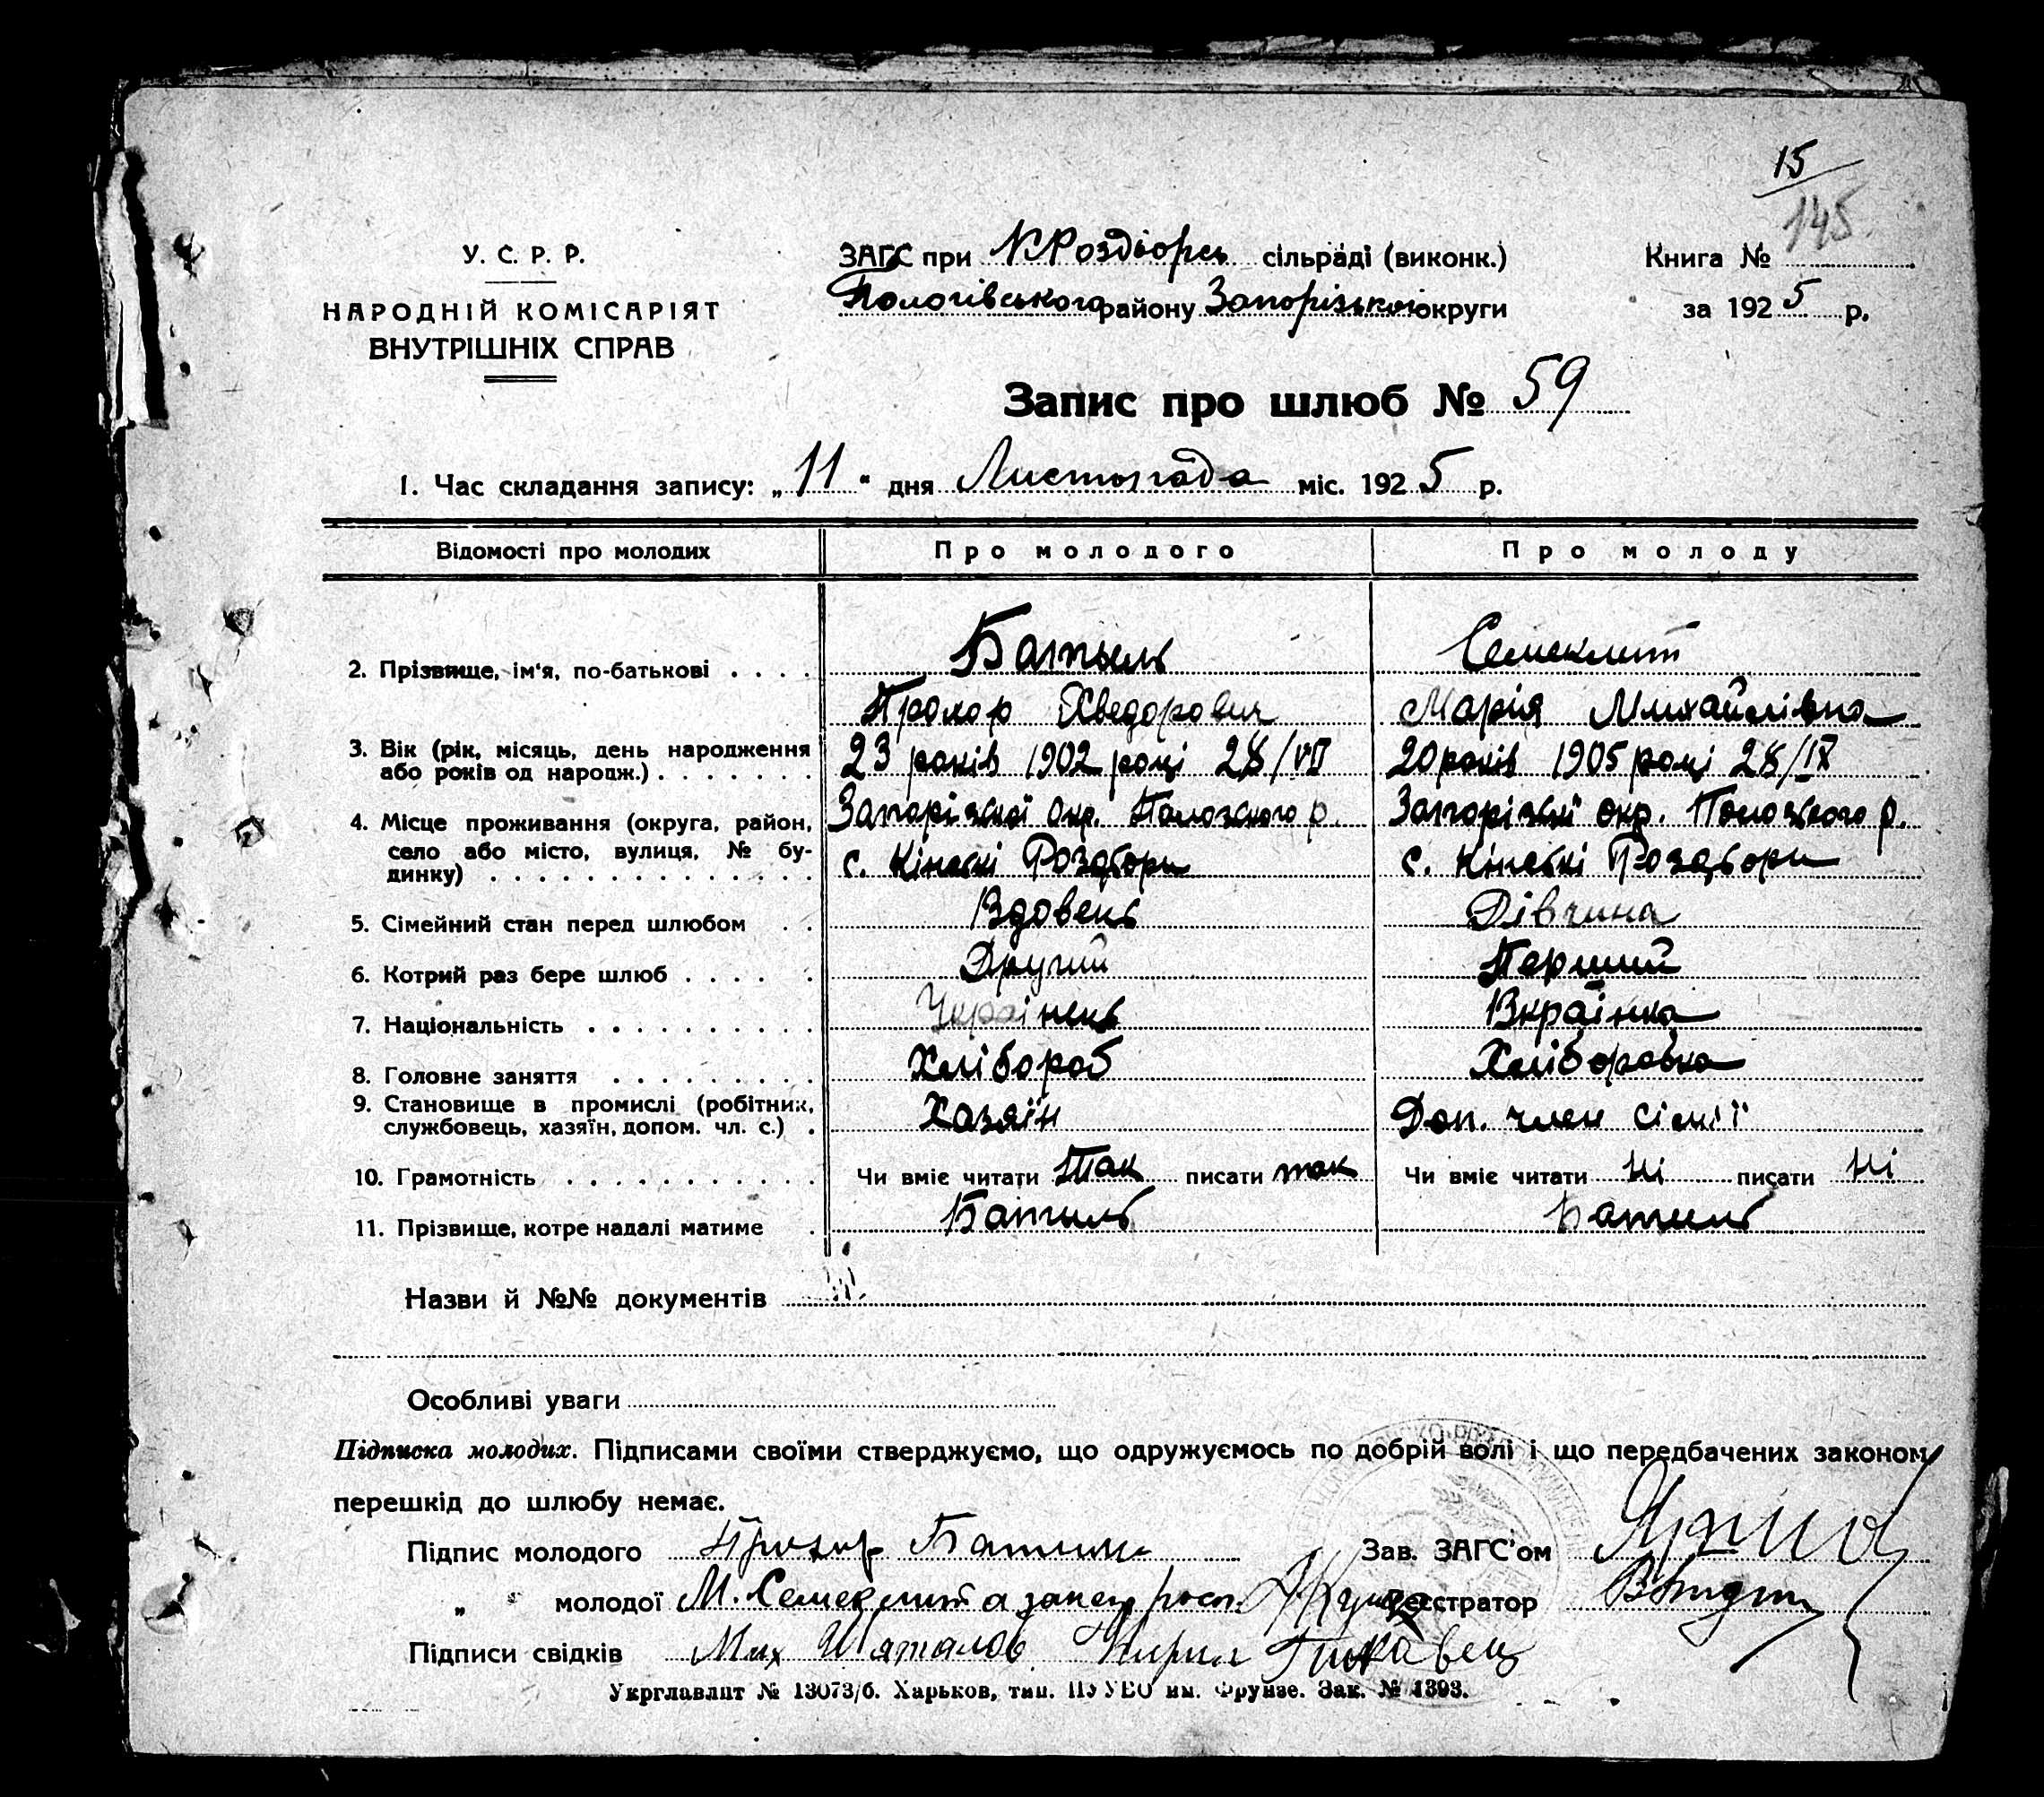 15
145
У. С. Р. Р.
НАРОДНІЙ КОМІСАРІЯТ
ВНУТРІШНІХ СПРАВ
ЗАГС при К Роздіорсь сільраді (виконк.)
Пологівського району Запорізької округи
Книга №
за 1925 р.
Запис про шлюб № 59
1. Час складання запису: „11“ дня Листопада міс. 1925 р.
Відомості про молодих Про молодого Про молоду
2. Прізвище, ім'я, по-батькові . . . . Батыль Семеклит
Прохор Хведорович Марія Михайлівна
3. Вік (рік, місяць, день народження 23 років 1902 році 28/VII 20 років 1905 році 28/IX
або років од народж.) . . . . . . .
4. Місце проживання (округа, район, Запорізкої окр. Положского р. Запорізкої окр. Положского р.
село або місто, вулиця, № бу- с. Кінські Роздори с. Кінські Роздори
динку) . . . . . . . . . . . . . .
5. Сімейний стан перед шлюбом . . Вдовець Дівчина
6. Котрий раз бере шлюб . . . . . Другий Перший
7. Національність . . . . . . . . . . Українець Вкраїнка
8. Головне заняття . . . . . . . . . Хлібороб Хліборобка
9. Становище в промислі (робітник, Хазяїн Доп. член сімії
службовець, хазяїн, допом. чл. с.) .
10. Грамотність . . . . . . . . . . . Чи вміє читати Так писати так Чи вміє читати Ні писати Ні
11. Прізвище, котре надалі матиме . Батиль Батиль
Назви й №№ документів
Особливі уваги
Підписка молодих. Підписами своїми стверджуємо, що одружуємось по добрій волі і що передбачених законом
перешкід до шлюбу немає.
Підпис молодого Прохор Батиль Зав. ЗАГС'ом
„ молодої М. Семеклит а за неи росп. Реєстратор
Підписи свідків Мих Шаталов Кирил
Укрглавліт № 13073/б. Харьков, тип. ПУ УВО им. Фрунзе. Зак. № 1393.